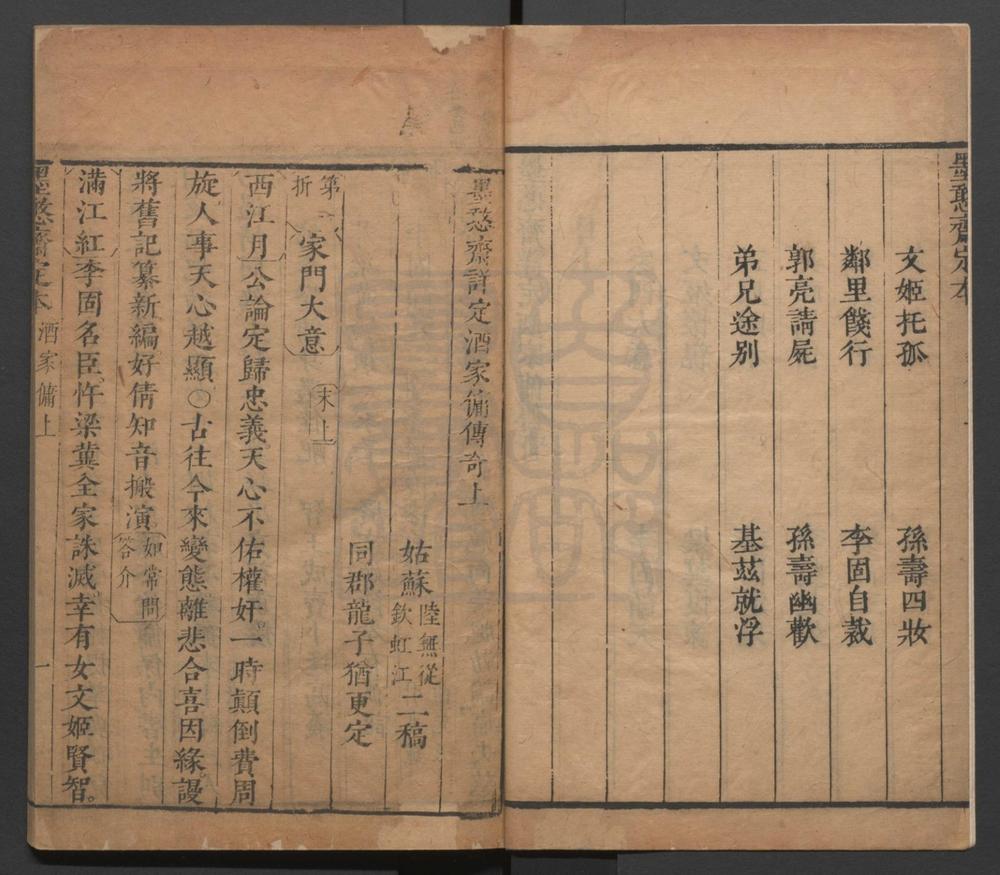 墨憨齋定本
文姬托孤 孫壽四妝
鄰里餞行 李固自裁
郭亮請屍 孫壽幽歡
弟兄途別 基茲就浮
墨憨齋詳定酒家傭傳奇上
姑蘇陸無從欽虹江二稿
同郡龍子猶更定
第一折 家門大意 末上
西江月公論定歸忠義天心不佑權奸一時顛倒費周
旋人事天心越顯○古往今來變態離悲合喜因緣謾
將舊記纂新編好倩知音搬演如常問答介
滿江紅李固名臣忤梁冀全家誅滅幸有女文姬賢智
墨憨齋定本 酒家傭上 一